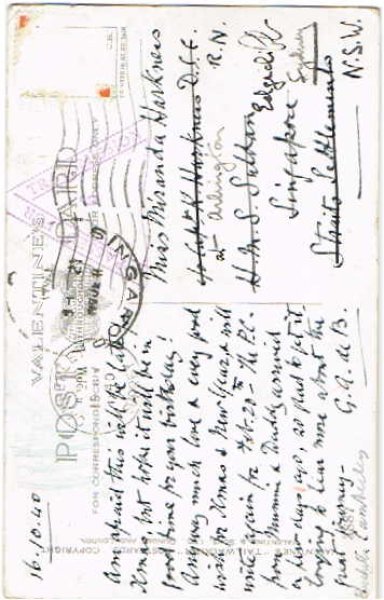 VALENTINE'S
POST CARD
FOR CORRESPONDENCE
FOR ADDRESS ONLY
16.10.40
Am afraid this will be late
Xmas but hope it will be in
good time for your birthday!
Am sending much love & every good
wish for Xmas & New Year, & will
write again for Feb. 20th. The P.C.
from Mummie & Daddy arrived
a few days ago, so glad to get it.
Longing to hear more about the
great journey —
G.A. de B.
Miss Miranda Harkness
c/o Capt K. Harkness D.S.C.
R.N.
at Arlington
H.M.S. Sultan
Edgecliff
Singapore
Sydney
Straits Settlements
N.S.W.
COPYRIGHT
VALENTINE & SONS, LTD. DUNDEE AND LONDON